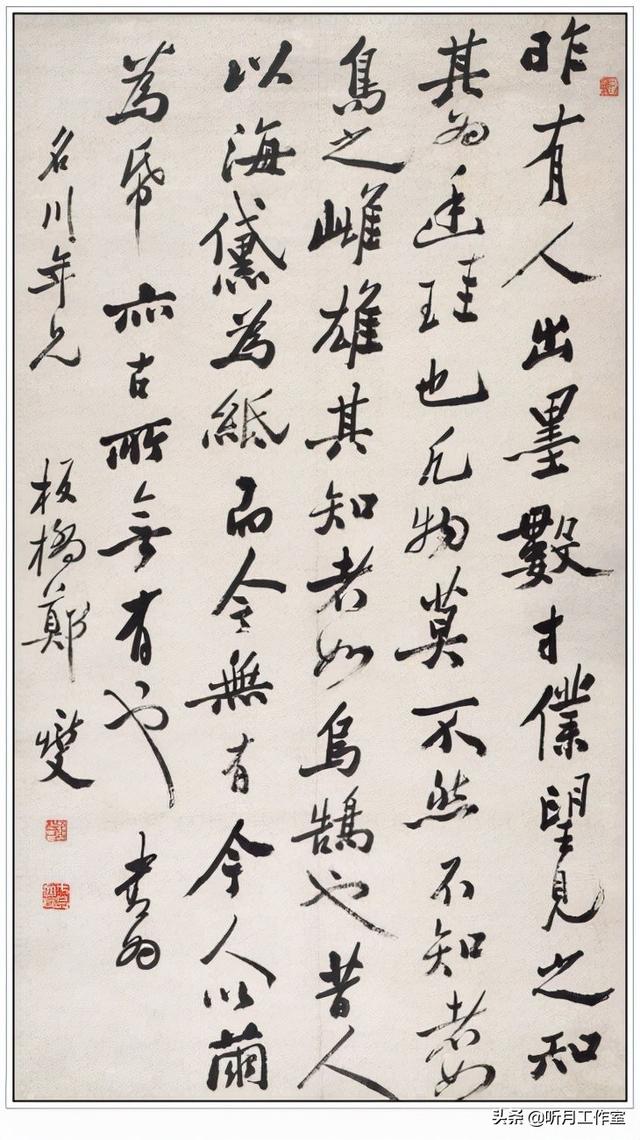 昨有人出墨數寸僕望見之知
其為廷珪也凡物莫不然不知者如
鳥之雌雄其知者如烏鵠也昔人
以海黛為紙而今無有今人以繭
為帋亦古所無有也 書為
名川年兄 板橋鄭燮
头条 @听月工作室